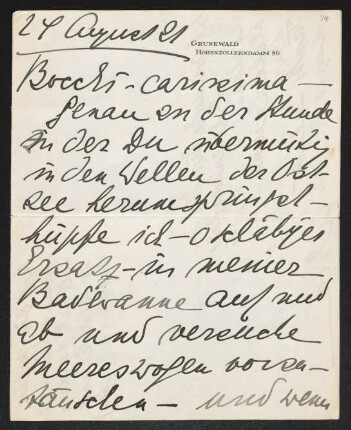 74
24 August 21
GRUNEWALD
HOHENZOLLERNDAMM 86
Bocchi-carissima -
genau zu der Stunde
in der Du übermütig
in den Wellen der Ost-
see herumspringst -
hüpfe ich - o kläbijes
Ersatz - in meiner
Badewanne auf und
ab und versuche
Meereswogen vorzu-
täuschen - und wenn